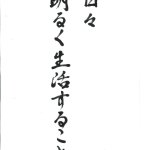 日々
明るく生活すること